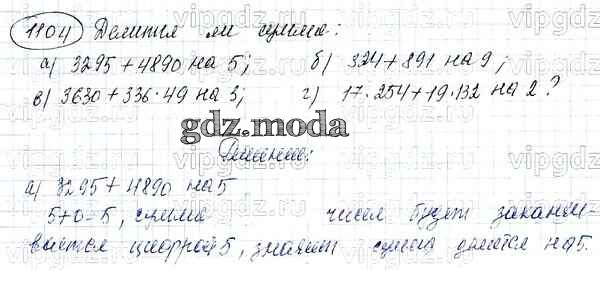 1104 Делится ли сумма:
а) 3295+4890 на 5; б) 324+891 на 9;
в) 3630+336·49 на 3; г) 17·254+19·132 на 2?
gdz.moda
Решение:
а) 3295+4890 на 5
5+0=5, сумма чисел будет заканчи-
ваться цифрой 5, значит сумма делится на 5.
vipgdz.ru